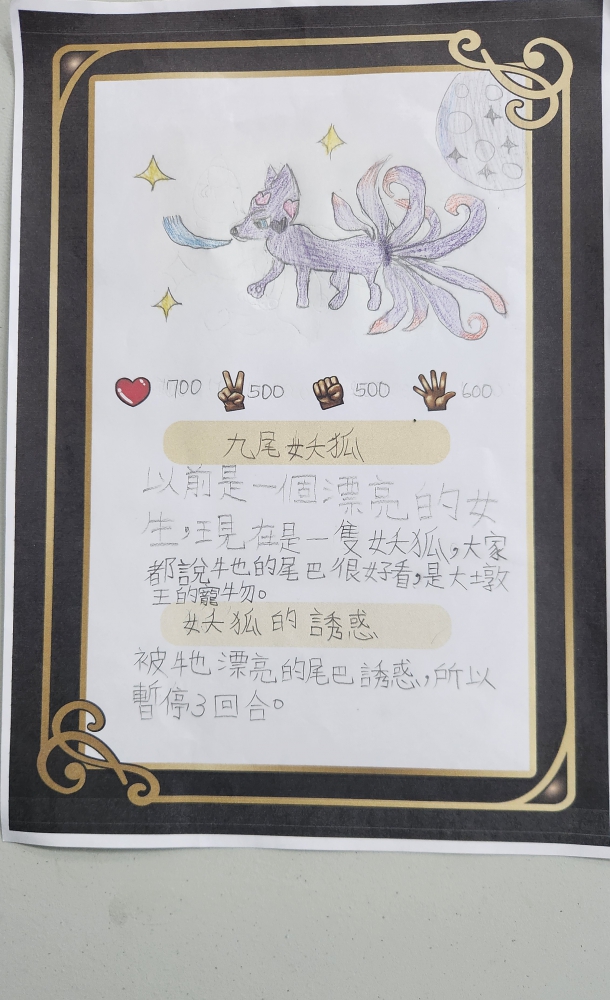 700 500 500 600
九尾妖狐
以前是一個漂亮的女
生,現在是一隻妖狐,大家
都說牠的尾巴很好看,是大墩
王的寵物。
妖狐的誘惑
被牠漂亮的尾巴誘惑,所以
暫停3回合。